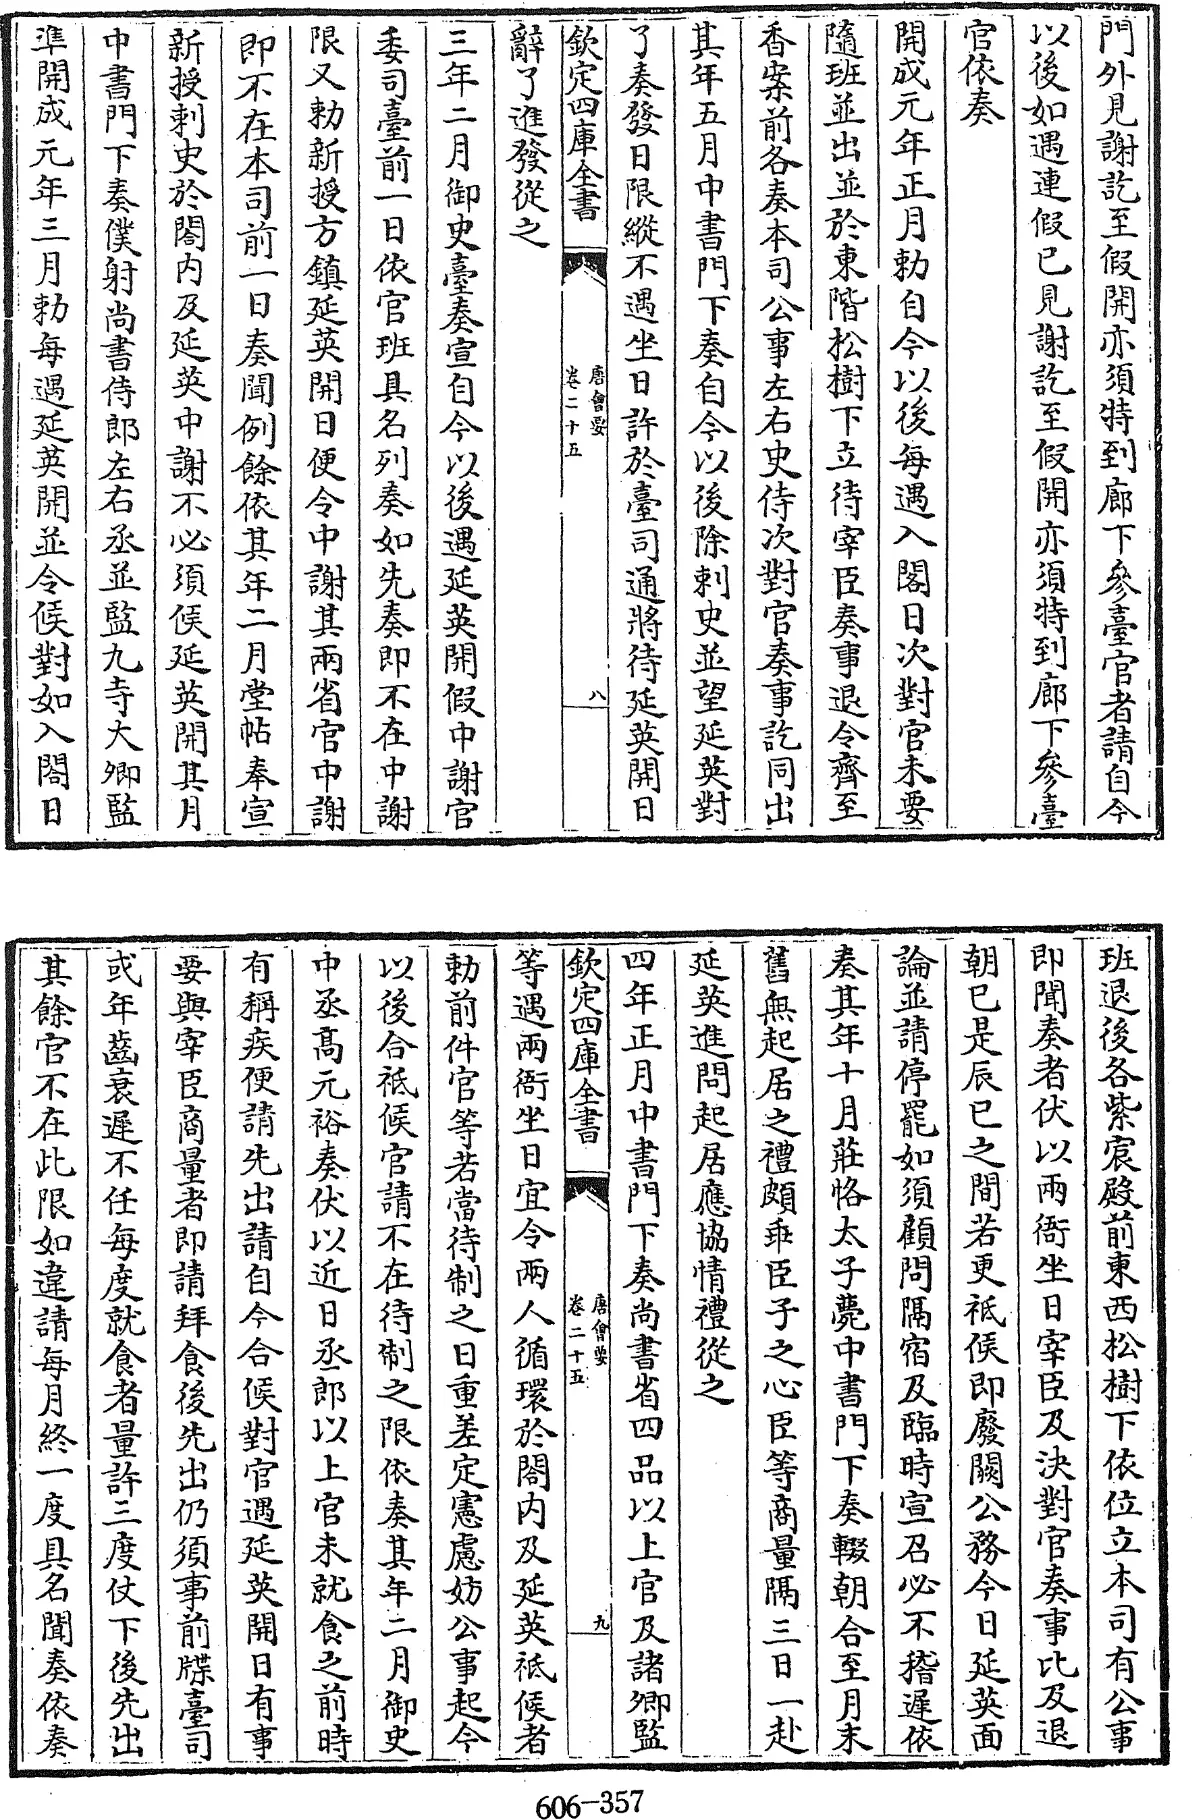 門外見謝訖至假開亦須特到廊下參臺官者請自今
以後如遇連假已見謝訖至假開亦須特到廊下參臺
官依奏
開成元年正月勅自今以後每遇入閣日次對官未要
隨班並出並於東階松樹下立待宰臣奏事退令齊至
香案前各奏本司公事左右史待次對官奏事訖同出
其年五月中書門下奏自今以後除刺史並望延英對
了奏發日限縱不遇坐日許於臺司通將待延英開日
欽定四庫全書
唐會要
卷二十五
八
辭了進發從之
三年二月御史臺奏宣自今以後遇延英開假中謝官
委司臺前一日依官班具名列奏如先奏即不在中謝
限又勅新授方鎮延英開日便令中謝其兩省官中謝
即不在本司前一日奏聞例餘依其年二月堂帖奉宣
新授刺史於閤内及延英中謝不必須候延英開其月
中書門下奏僕射尚書侍郎左右丞並監九寺大卿監
準開成元年三月勅每遇延英開並令候對如入閤日
班退後各紫宸殿前東西松樹下依位立本司有公事
即聞奏者伏以兩衙坐日宰臣及決對官奏事比及退
朝已是辰巳之間若更祗候即廢闕公務今日延英面
論並請停罷如須顧問隔宿及臨時宣召必不稽遲依
奏其年十月莊恪太子薨中書門下奏輟朝合至月末
舊無起居之禮頗乖臣子之心臣等商量隔三日一赴
延英進問起居應協情禮從之
四年正月中書門下奏尚書省四品以上官及諸卿監
欽定四庫全書
唐會要
卷二十五
九
等遇兩衙坐日宜令兩人循環於閤内及延英祗候者
勅前件官等若當待制之日重差定憲慮妨公事起今
以後合祗候官請不在待制之限依奏其年二月御史
中丞高元裕奏伏以近日丞郎以上官未就食之前時
有稱疾便請先出請自今合候對官遇延英開日有事
要與宰臣商量者即請拜食後先出仍須事前牒臺司
或年齒衰遲不任每度就食者量許三度仗下後先出
其餘官不在此限如違請每月終一度具名聞奏依奏
606-357